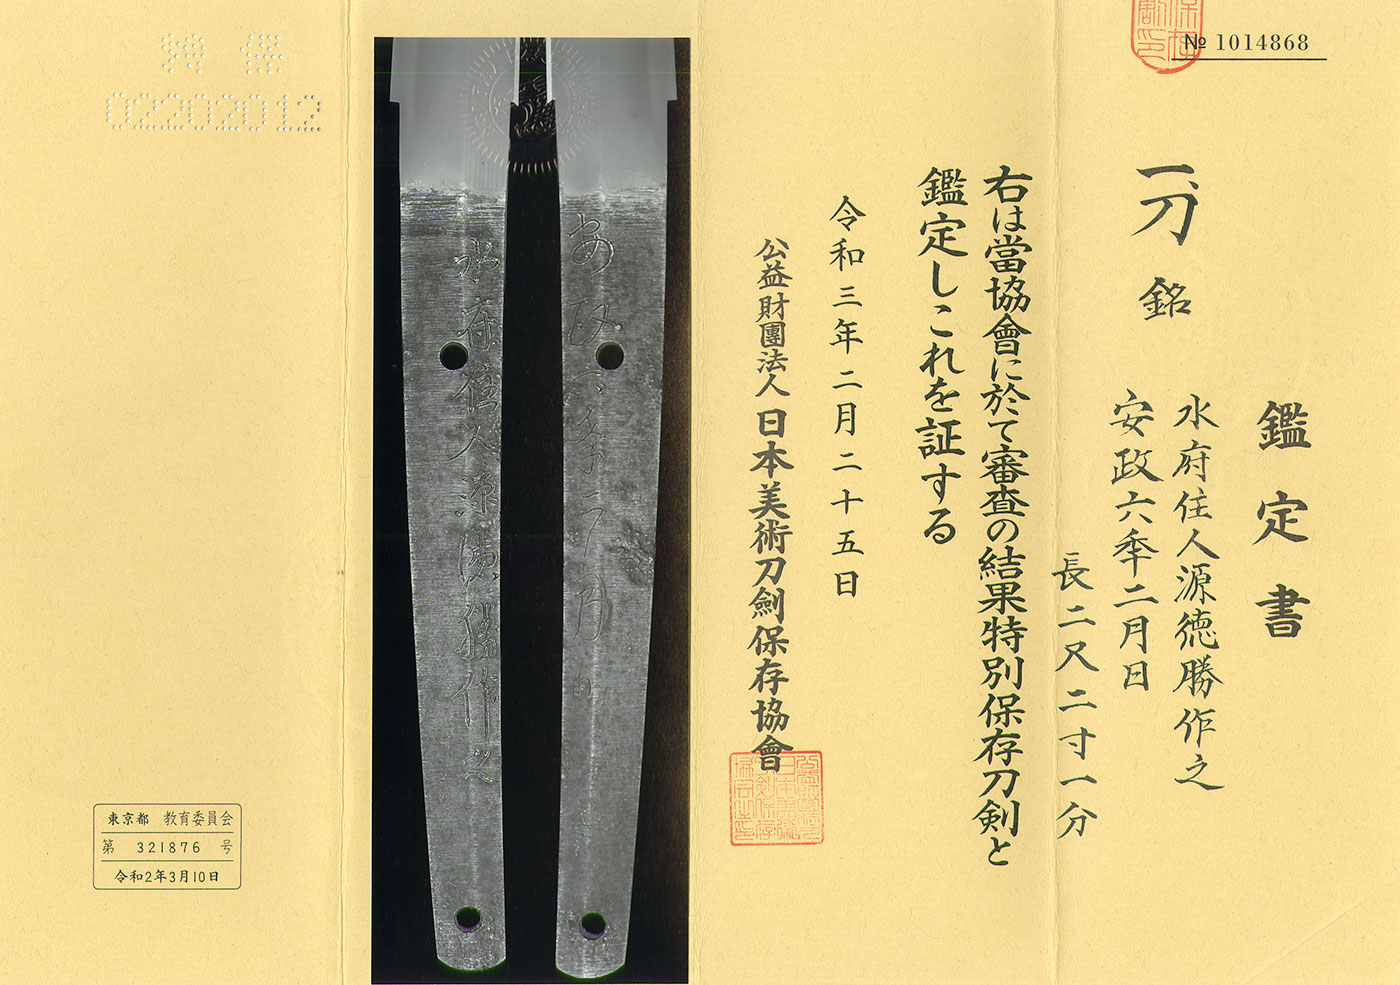 № 1014868
鑑定書
一刀 銘 水府住人源德勝作之
安政六年二月日
長二尺二寸一分
右は當協會に於て審査の結果特別保存刀剣と
鑑定しこれを証する
令和三年二月二十五日
公益財團法人 日本美術刀劍保存協會
あ政六年二月日
水府住人源德勝作之
02202012
東京都 教育委員会
第 321876 号
令和2年3月10日